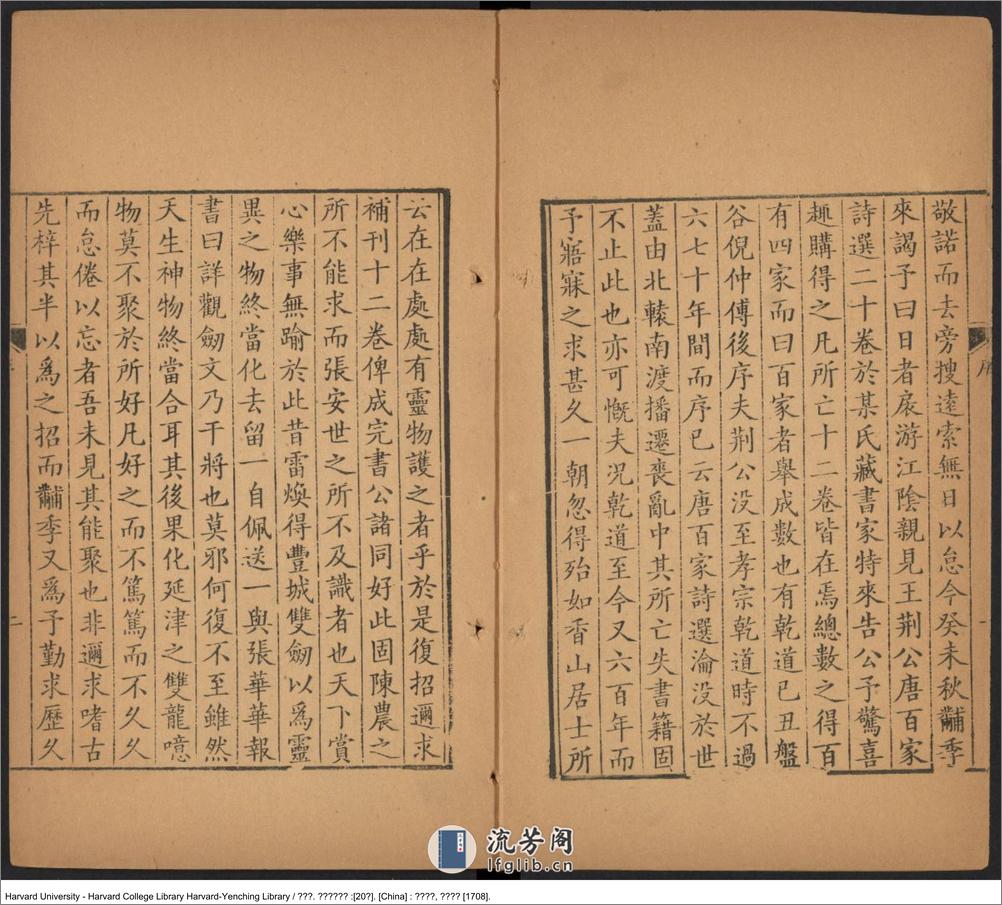 敬諾而去旁搜遠索無日以怠今癸未秋黼季
來謁予曰日者扆游江陰親見王荆公唐百家
詩選二十卷於某氏藏書家特來告公予驚喜
趣購得之凡所亡十二卷皆在焉總數之得百
有四家而曰百家者舉成數也有乾道己丑盤
谷倪仲傅後序夫荆公没至孝宗乾道時不過
六七十年間而序已云唐百家詩選淪没於世
蓋由北轅南渡播遷喪亂中其所亡失書籍固
不止此也亦可慨夫况乾道至今又六百年而
予寤寐之求甚久一朝忽得殆如香山居士所
序
一
云在在處處有靈物護之者乎於是復招邇求
補刊十二卷俾成完書公諸同好此固陳農之
所不能求而張安世之所不及識者也天下賞
心樂事無踰於此昔雷煥得豐城雙劒以爲靈
異之物終當化去留一自佩送一與張華華報
書曰詳觀劒文乃干將也莫邪何復不至雖然
天生神物終當合耳其後果化延津之雙龍噫
物莫不聚於所好凡好之而不篤篤而不久久
而怠倦以忘者吾未見其能聚也非邇求嗜古
先梓其半以爲之招而黼季又爲予勤求歷久
二
流芳阁
lfglib.cn
Harvard University - Harvard College Library Harvard-Yenching Library / ???. ?????? :[20?]. [China] : ????, ???? [1708].